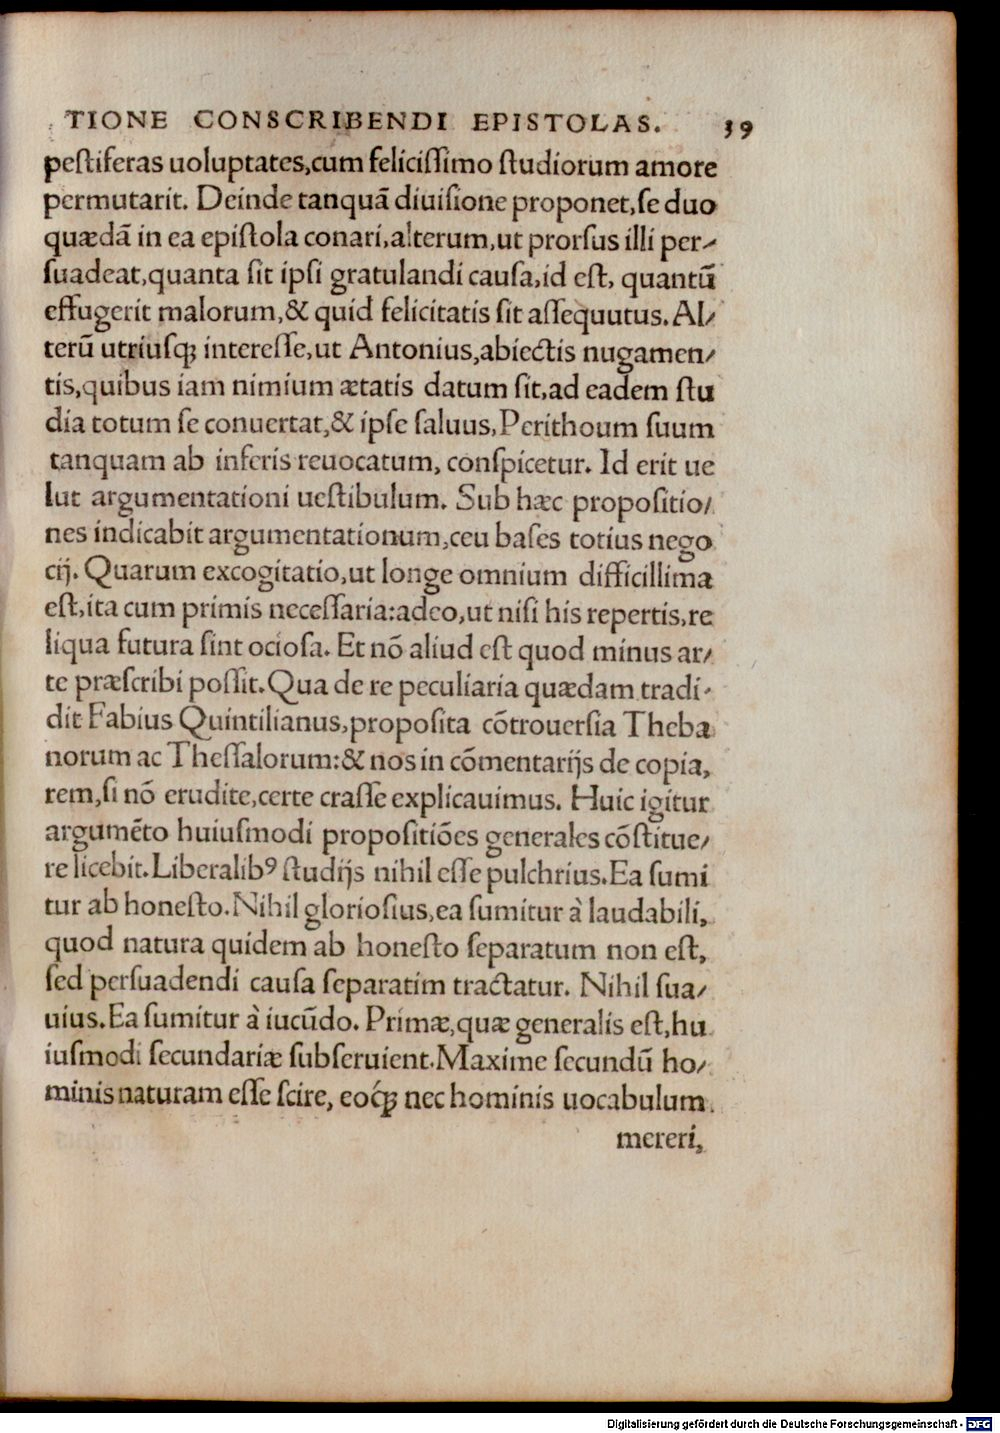 TIONE CONSCRIBENDI EPISTOLAS. 39
pestiferas uoluptates,cum felicissimo studiorum amore
permutarit. Deinde tanquã diuisione proponet,se duo
quædã in ea epistola conari,alterum,ut prorsus illi per-
suadeat,quanta sit ipsi gratulandi causa,id est, quantũ
effugerit malorum,& quid felicitatis sit assequutus. Al-
terũ utriusqꝫ interesse,ut Antonius,abiectis nugamen-
tis,quibus iam nimium ætatis datum sit,ad eadem stu
dia totum se conuertat,& ipse saluus,Perithoum suum
tanquam ab inferis reuocatum, conspicetur. Id erit ue
lut argumentationi uestibulum. Sub hæc propositio-
nes indicabit argumentationum,ceu bases totius nego
cij. Quarum excogitatio,ut longe omnium difficillima
est,ita cum primis necessaria:adeo,ut nisi his repertis,re
liqua futura sint ociosa. Et nõ aliud est quod minus ar-
te præscribi possit.Qua de re peculiaria quædam tradi-
dit Fabius Quintilianus,proposita cõtrouersia Theba
norum ac Thessalorum:& nos in cõmentarijs de copia,
rem,si nõ erudite,certe crasse explicauimus. Huic igitur
argumẽto huiusmodi propositiões generales cõstitue-
re licebit.Liberalibꝰ studijs nihil esse pulchrius.Ea sumi
tur ab honesto.Nihil gloriosius,ea sumitur à laudabili,
quod natura quidem ab honesto separatum non est,
sed persuadendi causa separatim tractatur. Nihil sua-
uius.Ea sumitur à iucũdo. Primæ,quæ generalis est,hu
iusmodi secundariæ subseruient.Maxime secundũ ho-
minis naturam esse scire, eoq́ꝫ nec hominis uocabulum
mereri,
Digitalisierung gefördert durch die Deutsche Forschungsgemeinschaft - DFG